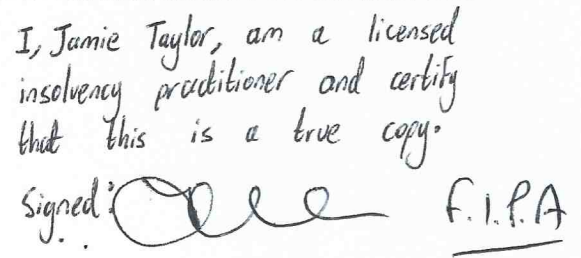 I, Jamie Taylor, am a licensed
insolvency practitioner and certify
that this is a true copy.
Signed: F.I.P.A